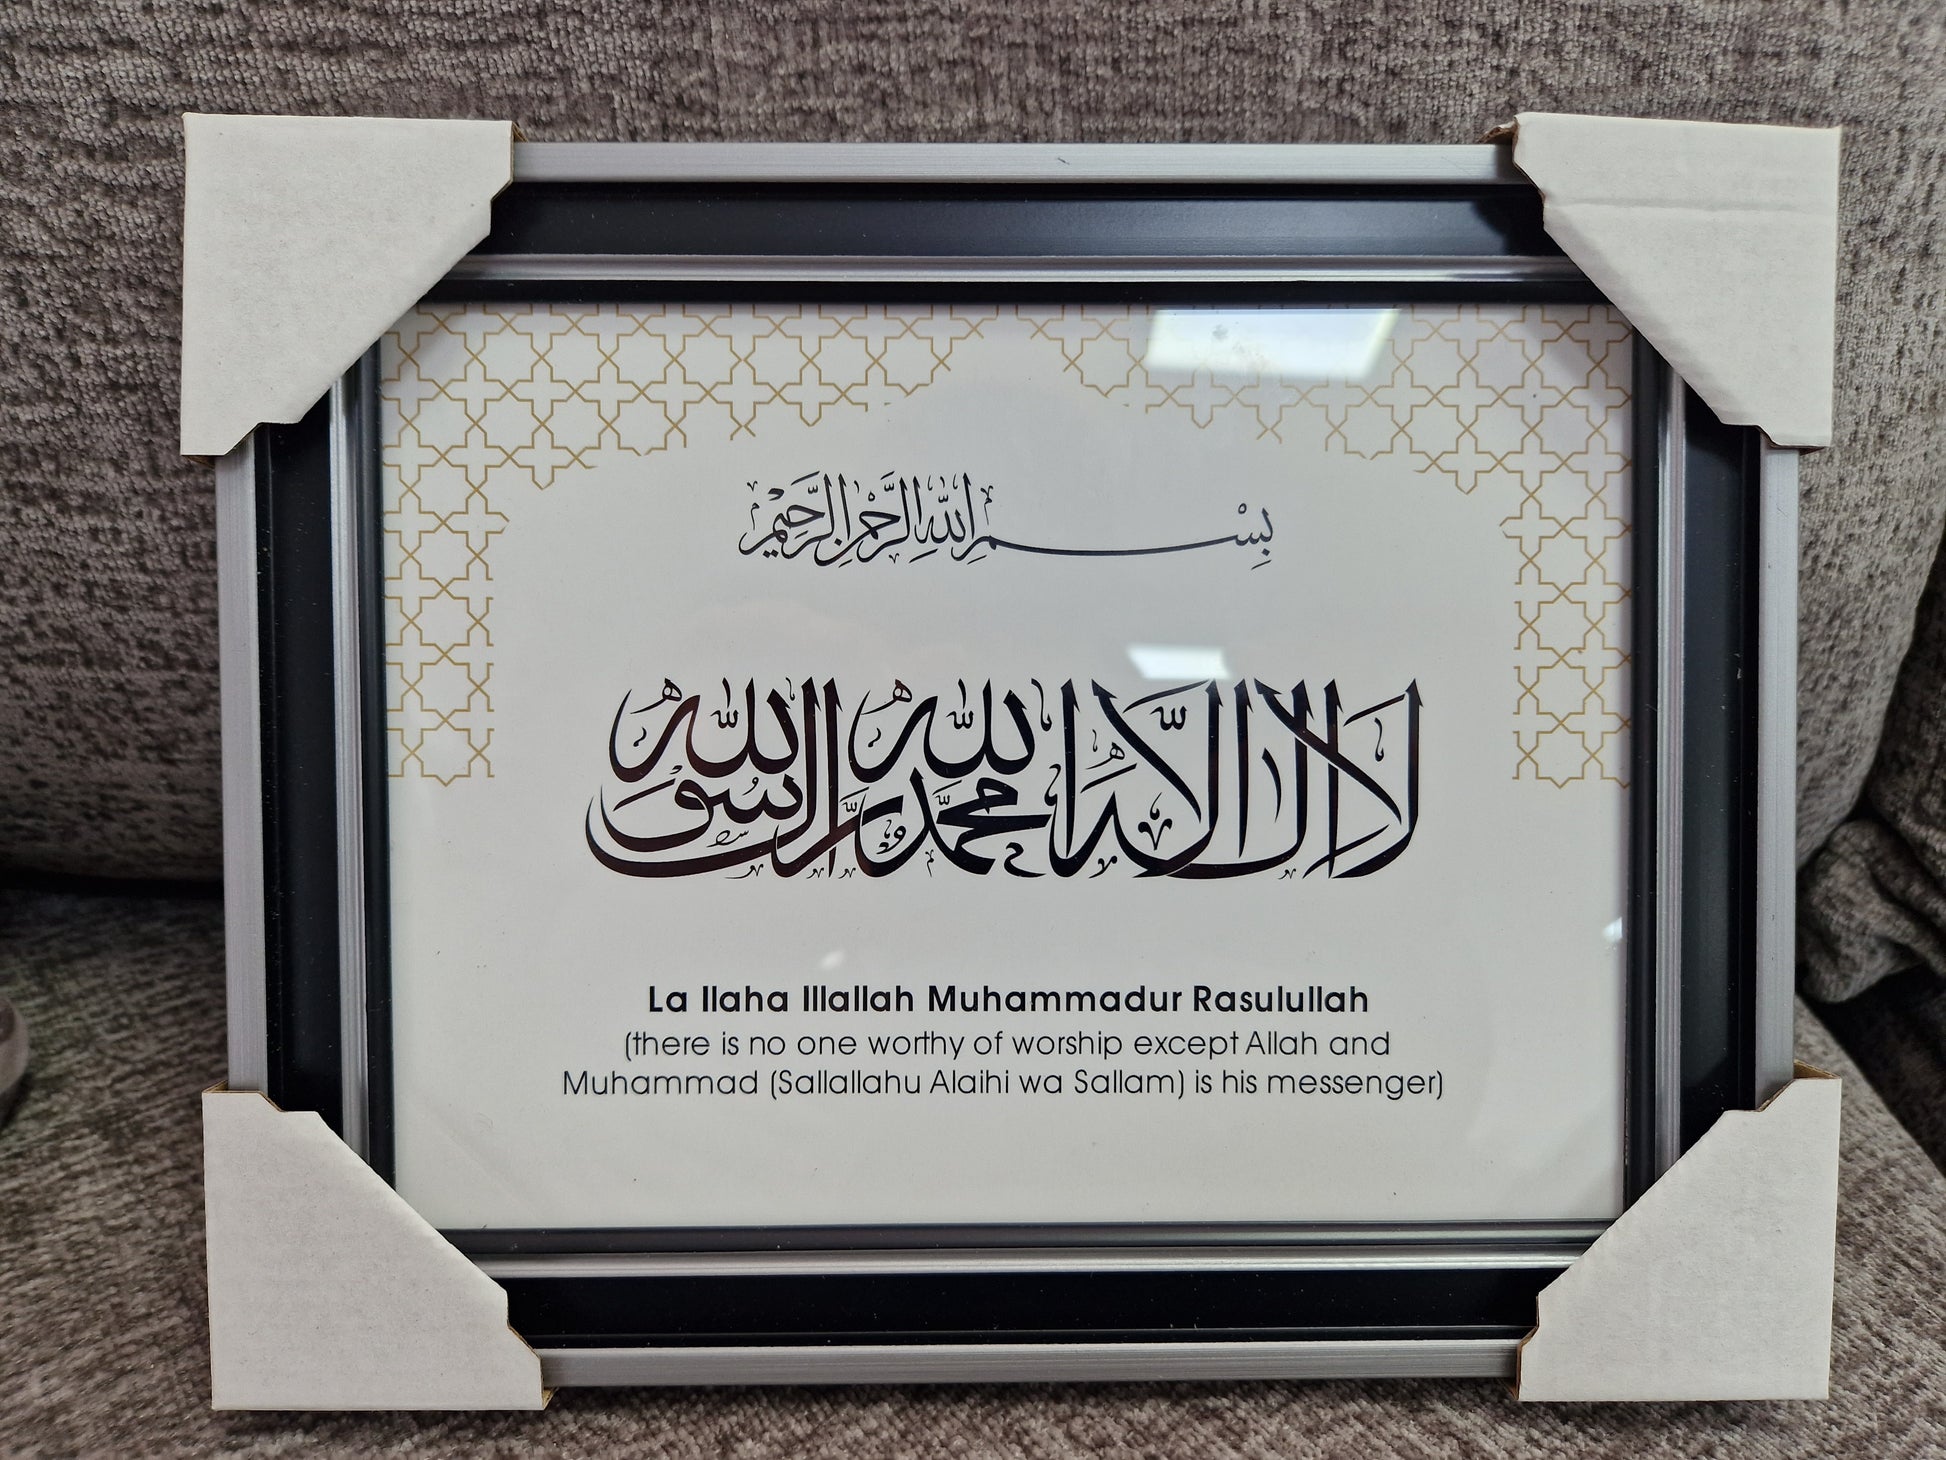 بِسْمِ اللهِ الرَّحْمٰنِ الرَّحِيْمِ
لَا اِلٰهَ اِلَّا اللهُ مُحَمَّدٌ رَّسُوْلُ اللهِ
La Ilaha Illallah Muhammadur Rasulullah
(there is no one worthy of worship except Allah and
Muhammad (Sallallahu Alaihi wa Sallam) is his messenger)